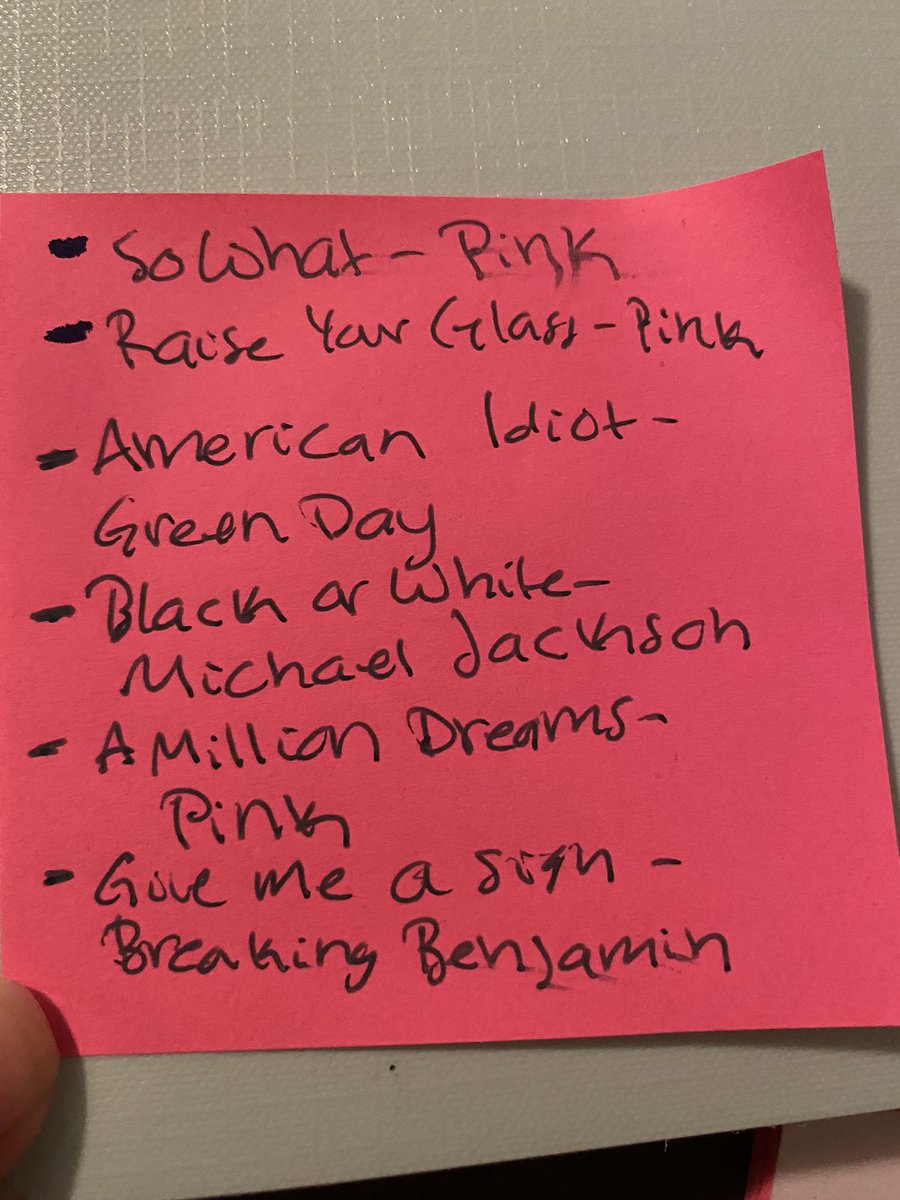 - So What - Pink
- Raise Your Glass - Pink
- American Idiot -
Green Day
- Black or White -
Michael Jackson
- A Million Dreams -
Pink
- Give me a sign -
Breaking Benjamin